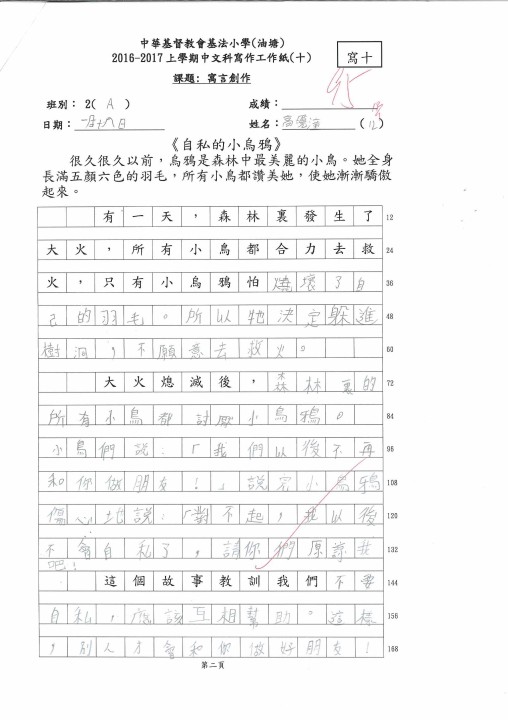 中華基督教會基法小學(油塘)
2016-2017上學期中文科寫作工作紙(十)
寫十
課題: 寓言創作
班別： 2( A ) 成績：
日期： 姓名： (12)
《自私的小烏鴉》
很久很久以前，烏鴉是森林中最美麗的小鳥。她全身
長滿五顏六色的羽毛，所有小鳥都讚美她，使她漸漸驕傲
起來。
有一天，森林裏發生了 12
大火，所有小鳥都合力去救 24
火，只有小烏鴉怕燒壞了自 36
己的羽毛。所以牠決定躲進 48
樹洞，不願意去救火。 60
大火熄滅後，森林裏的 72
所有小鳥都討厭小烏鴉。 84
小鳥們說：「我們以後不再 96
和你做朋友！」說完小烏鴉 108
傷心地說：「對不起，我以後 120
不會自私了，請你們原諒我 132
吧！
這個故事教訓我們不要 144
自私，應該互相幫助。這樣 156
，別人才會和你做好朋友！ 168
第二頁